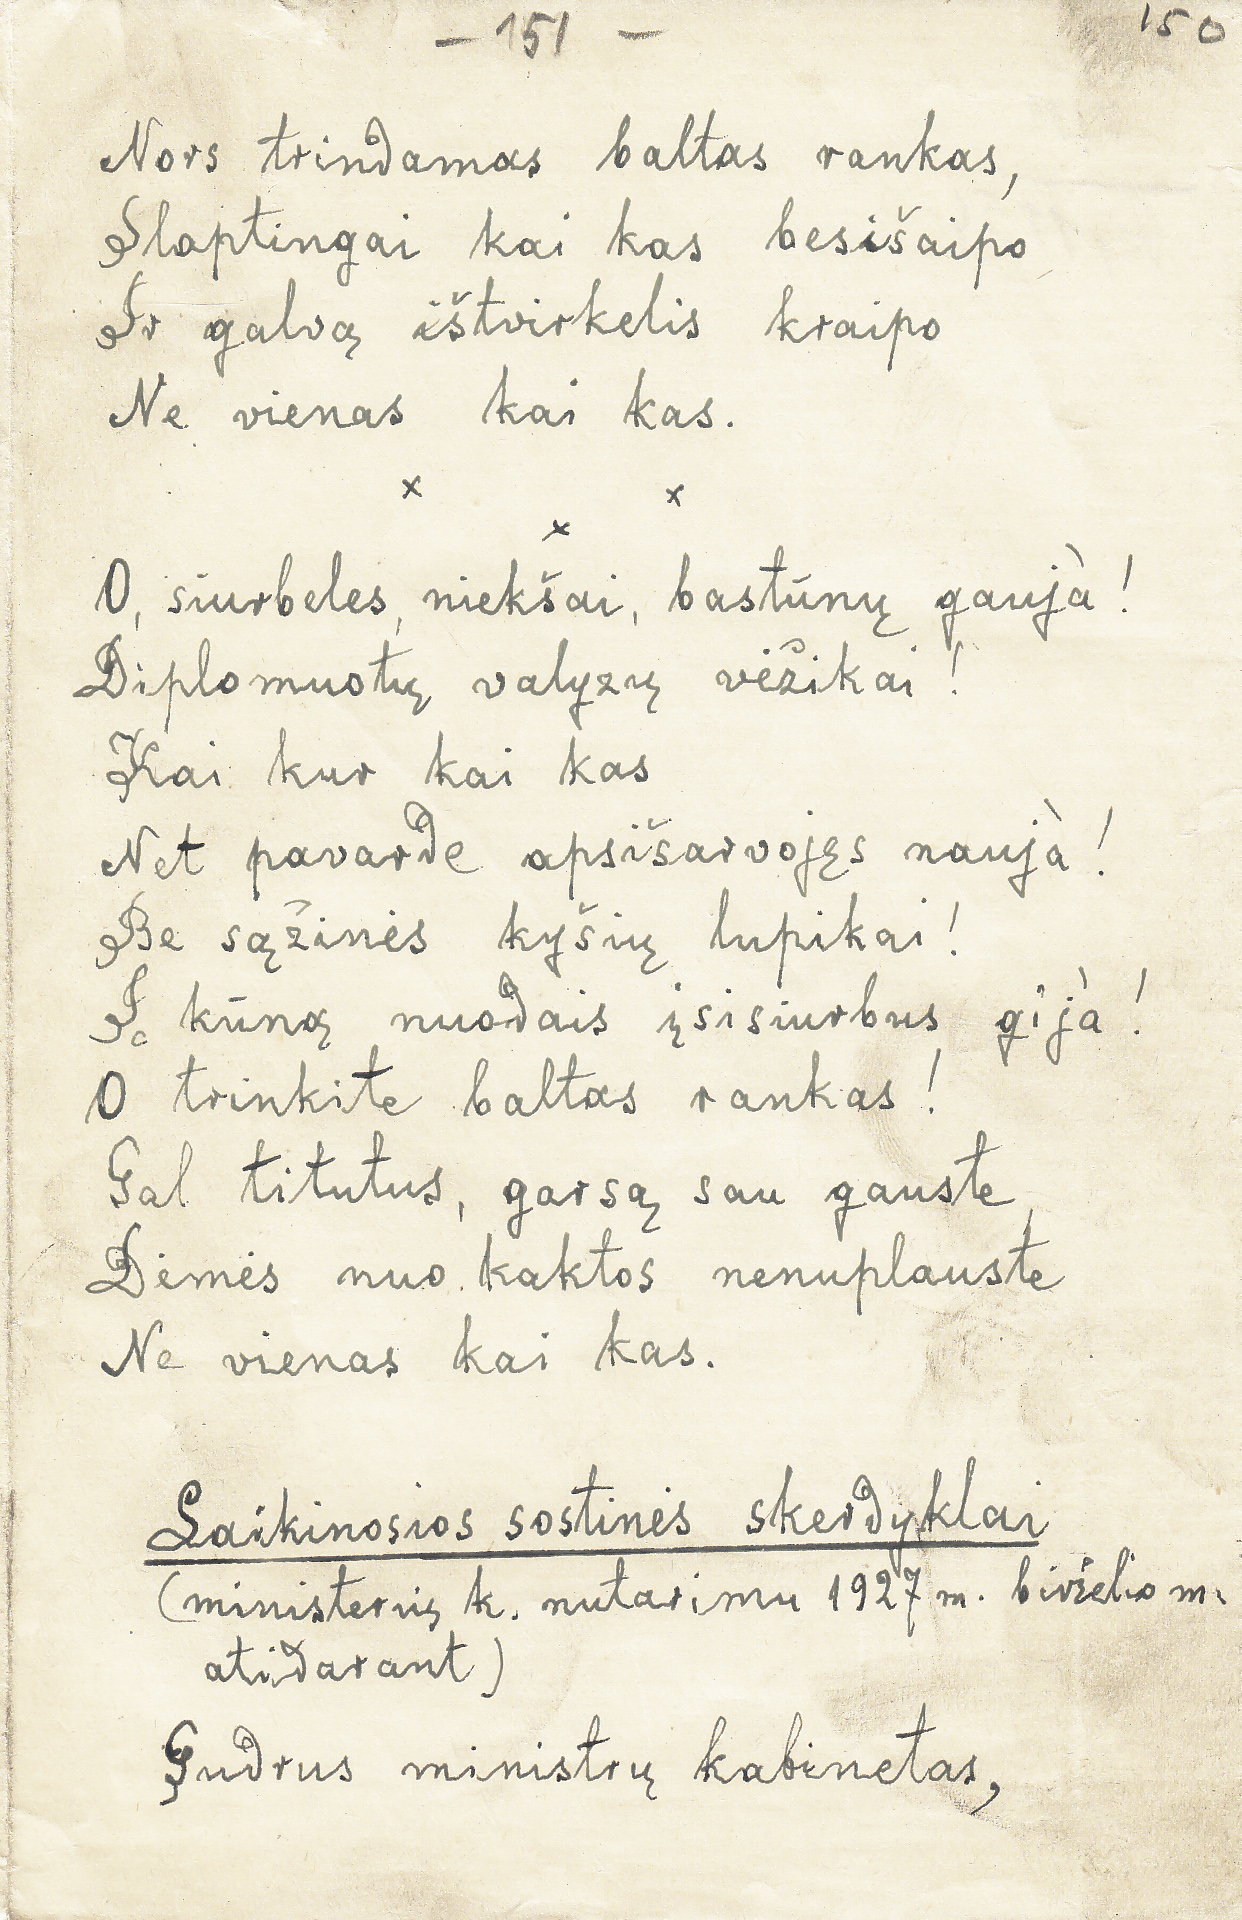 – 151 –
150
Nors trindamas baltas rankas,
Slaptingai kai kas besišaipo
Ir galvą ištvirkelis kraipo
Ne vienas kai kas.
x x
x
O, siurbeles, niekšai, bastūnų gaujà!
Diplomuotų valyzų vėžikai!
Kai kur kai kas
Net pavarde apsišarvojęs naujà!
Be sąžinės kyšių lupikai!
Į kūną nuodais įsisiurbus gijà!
O trinkite baltas rankas!
Gal titutus, garsą sau gauste,
Dėmės nuo kaktos nenuplauste
Ne vienas kai kas.
Laikinosios sostinės skerdyklai
(ministerių k. nutarimu 1927 m. birželio m.
atidarant)
Gudrus ministrų kabinetas,